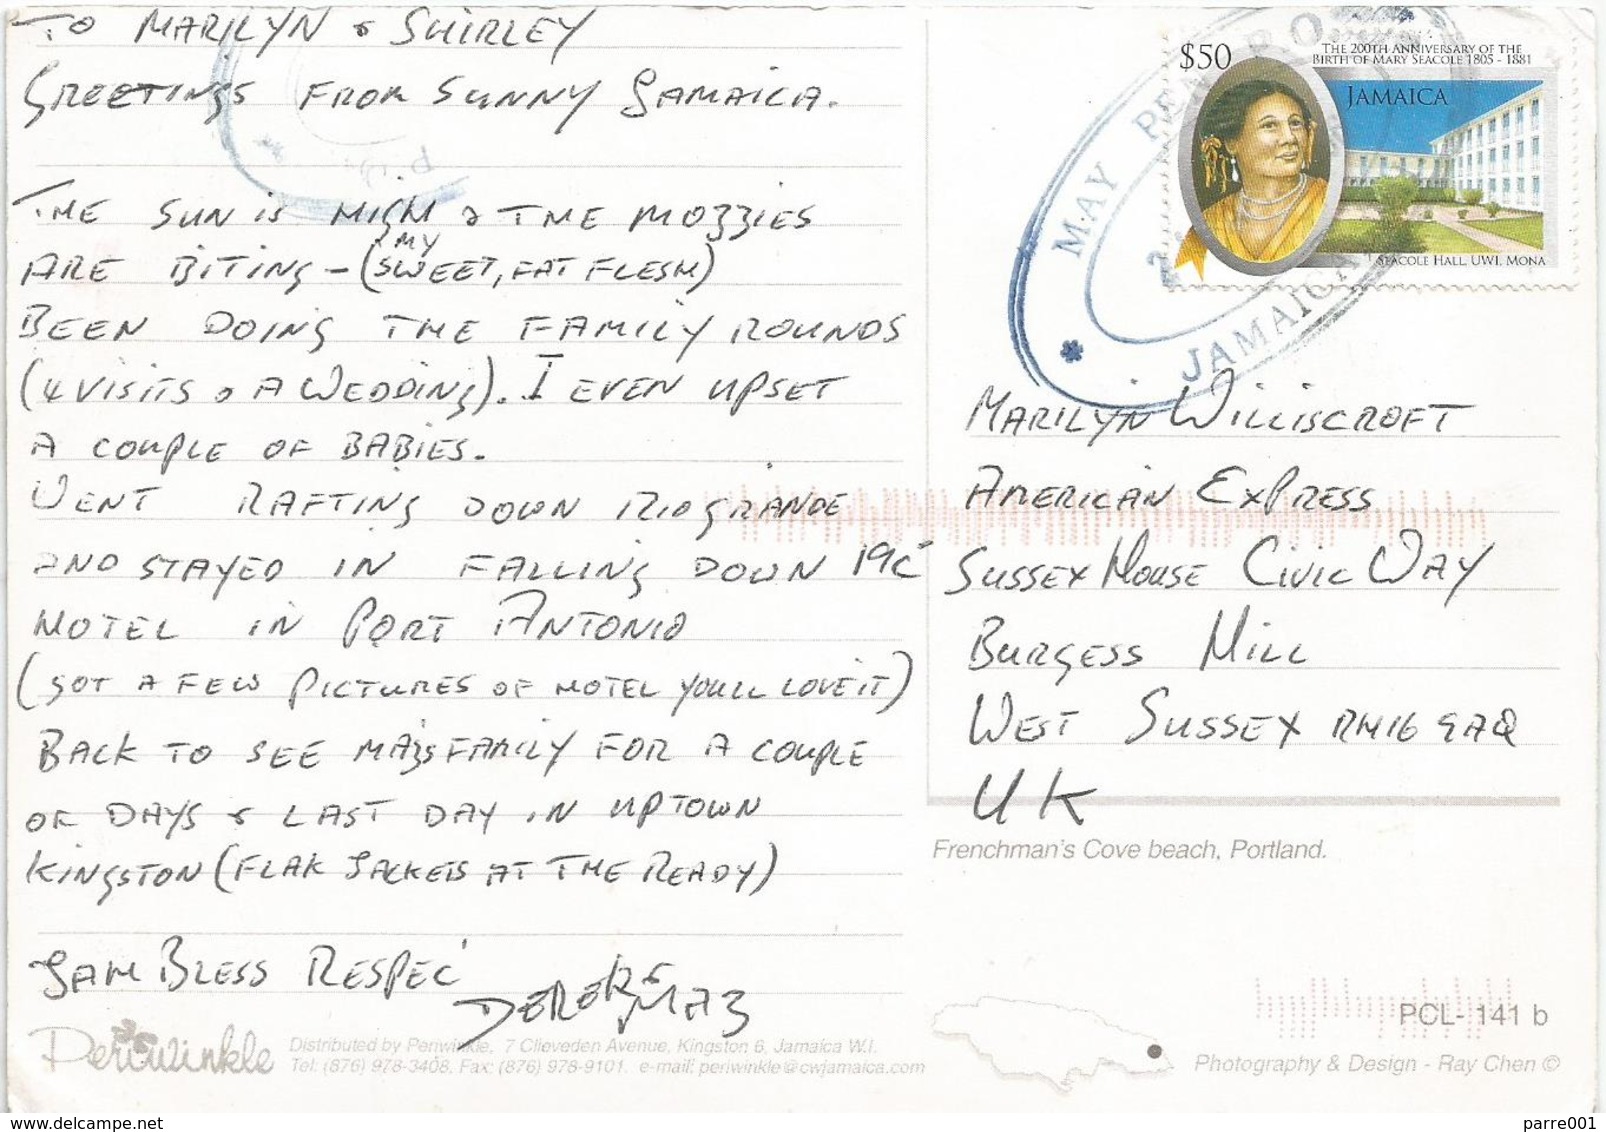 TO MARILYN & SHIRLEY
GREETINGS FROM SUNNY JAMAICA.
THE SUN IS HIGH & THE MOZZIES
ARE BITING - (MY SWEET, FAT FLESH)
BEEN DOING THE FAMILY ROUNDS
(4 VISITS & A WEDDING). I EVEN UPSET
A COUPLE OF BABIES.
WENT RAFTING DOWN RIO GRANDE
AND STAYED IN FALLING DOWN 19C
HOTEL IN PORT ANTONIO
(GOT A FEW PICTURES OF HOTEL YOULL LOVE IT)
BACK TO SEE MAZS FAMILY FOR A COUPLE
OF DAYS & LAST DAY IN UPTOWN
KINGSTON (FLAK JACKETS AT THE READY)
JAH BLESS RESPEC'
DEREK & MAZ
Periwinkle
Distributed by Periwinkle, 7 Clieveden Avenue, Kingston 6, Jamaica W.I.
Tel: (876) 978-3408, Fax: (876) 978-9101. e-mail: periwinkle@cwjamaica.com
$50
THE 200TH ANNIVERSARY OF THE
BIRTH OF MARY SEACOLE 1805 - 1881
JAMAICA
SEACOLE HALL, UWI, MONA
MAY PEN
JAMAICA
MARILYN WILLISCROFT
AMERICAN EXPRESS
SUSSEX HOUSE CIVIC WAY
BURGESS HILL
WEST SUSSEX RH16 9AQ
UK
Frenchman's Cove beach, Portland.
PCL- 141 b
Photography & Design - Ray Chen ©
delcampe.net
parre001